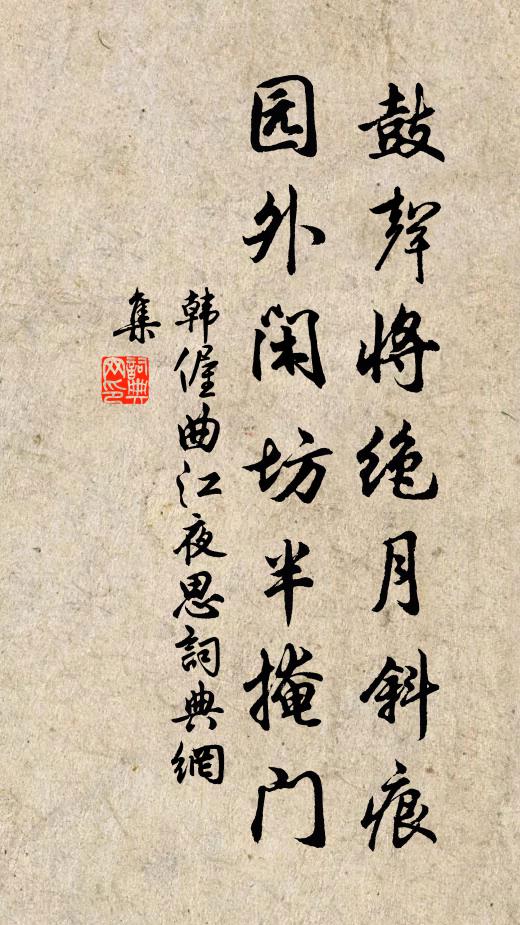 鼓聲将绝月斜痕
园外闲坊半掩门
韩偓曲江夜思詞典網
集
詞典
网印